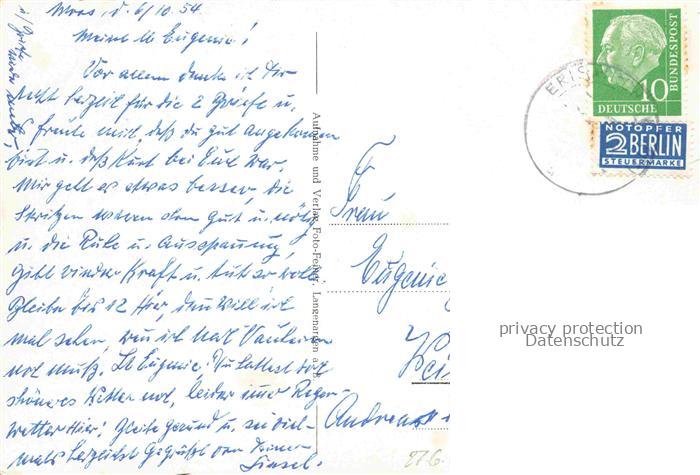 d. 6/10. 54
Meine lb Eugenie!
Vor allem danke ich Dir
recht herzlich für die 2 Briefe u.
freute mich, daß du gut angekommen
bist u. daß Kurt bei Euch war.
Mir geht es etwas besser, die
Spritzen waren gut u. nötig
u. die Ruhe u. Ausspannung,
gibt wieder Kraft u. tut so wohl.
Bleibe bis 12 Hier, dann will ich
mal sehen, wen ich nach
noch muß. Lb Eugenie! Du hattest doch
schöneres Wetter noch, leider immer Regen-
wetter Hier! Bleibe gesund u. sei viel-
mals herzlichst Gegrüßt von Deiner
Liesel.
Aufnahme und Verlag Foto-Langenargen a. B.
Frau
Eugenie
Andreas
276
10
DEUTSCHE
BUNDESPOST
NOTOPFER
2 BERLIN
STEUERMARKE
privacy protection
Datenschutz